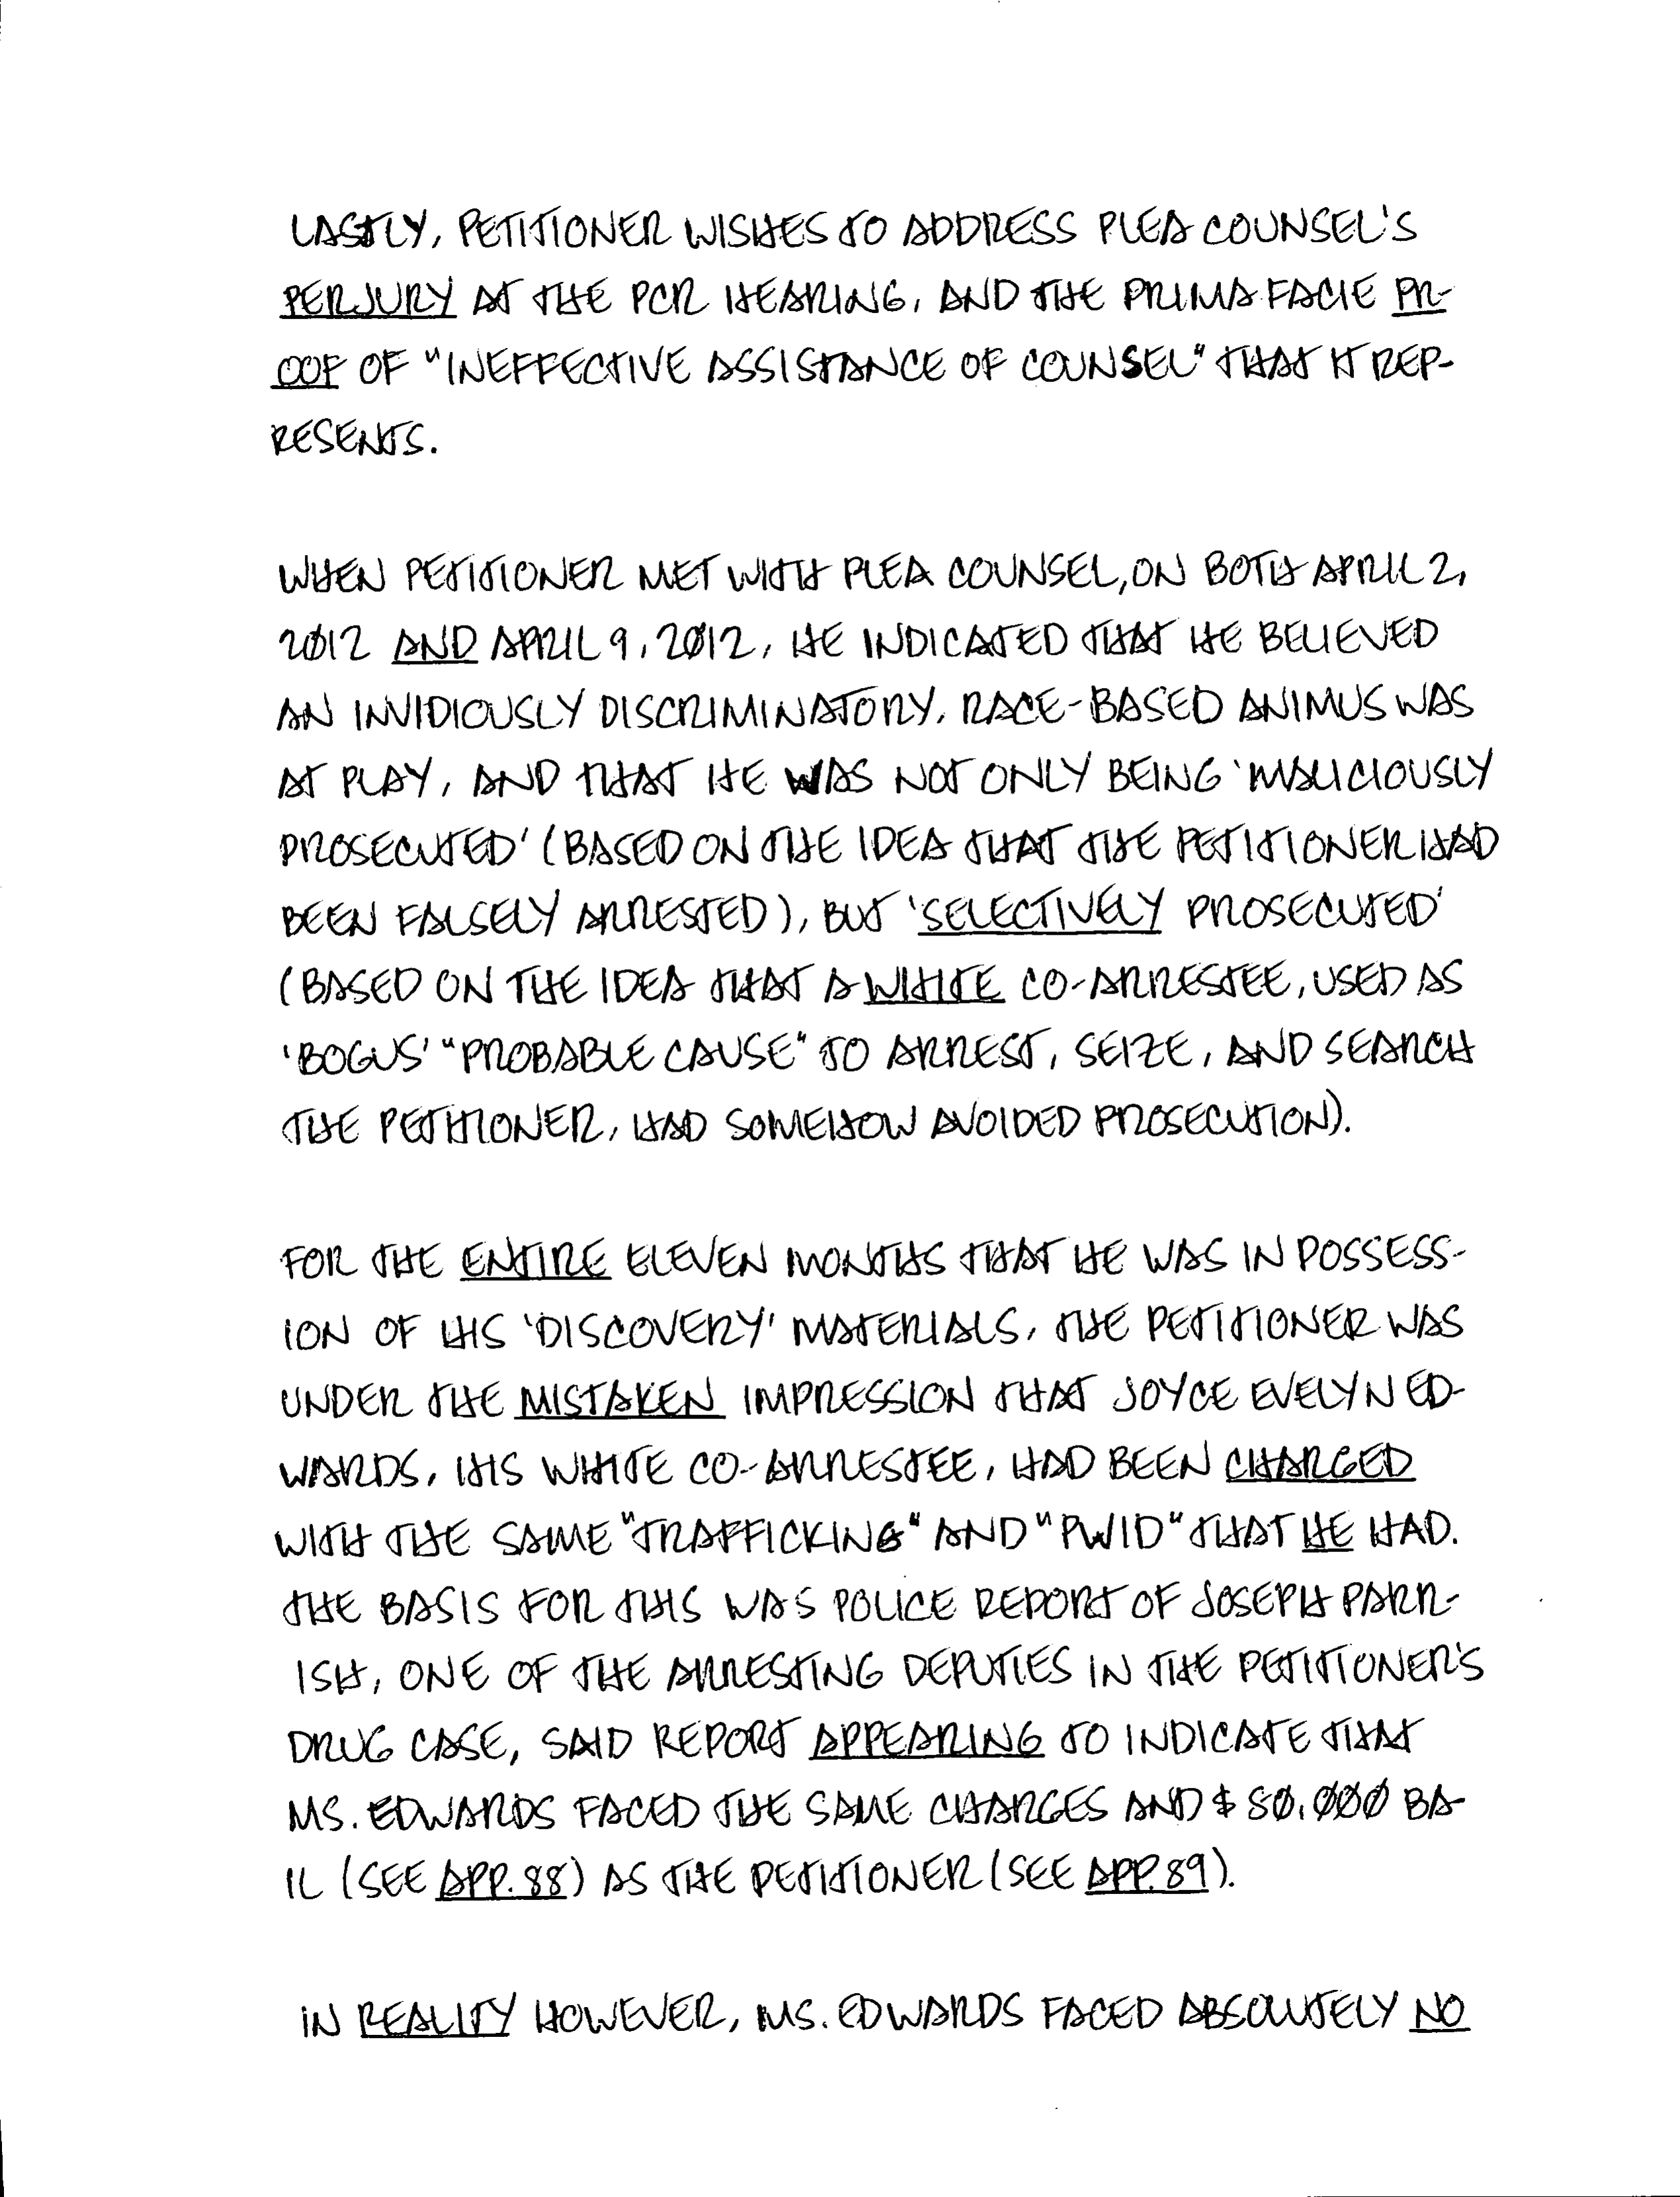 LASTLY, PETITIONER WISHES TO ADDRESS PLEA COUNSEL'S
PERJURY AT THE PCR HEARING, AND THE PRIMA FACIE PR-
OOF OF "INEFFECTIVE ASSISTANCE OF COUNSEL" THAT IT REP-
RESENTS.
WHEN PETITIONER MET WITH PLEA COUNSEL, ON BOTH APRIL 2,
2012 AND APRIL 9, 2012, HE INDICATED THAT HE BELIEVED
AN INVIDIOUSLY DISCRIMINATORY, RACE-BASED ANIMUS WAS
AT PLAY, AND THAT HE WAS NOT ONLY BEING 'MALICIOUSLY
PROSECUTED' (BASED ON THE IDEA THAT THE PETITIONER HAD
BEEN FALSELY ARRESTED), BUT 'SELECTIVELY PROSECUTED'
(BASED ON THE IDEA THAT A WHITE CO-ARRESTEE, USED AS
'BOGUS' "PROBABLE CAUSE" TO ARREST, SEIZE, AND SEARCH
THE PETITIONER, HAD SOMEHOW AVOIDED PROSECUTION).
FOR THE ENTIRE ELEVEN MONTHS THAT HE WAS IN POSSESS-
ION OF HIS 'DISCOVERY' MATERIALS, THE PETITIONER WAS
UNDER THE MISTAKEN IMPRESSION THAT JOYCE EVELYN ED-
WARDS, HIS WHITE CO-ARRESTEE, HAD BEEN CHARGED
WITH THE SAME "TRAFFICKING" AND "PWID" THAT HE HAD.
THE BASIS FOR THIS WAS POLICE REPORT OF JOSEPH PARR-
ISH, ONE OF THE ARRESTING DEPUTIES IN THE PETITIONER'S
DRUG CASE, SAID REPORT APPEARING TO INDICATE THAT
MS. EDWARDS FACED THE SAME CHARGES AND $80,000 BA-
IL (SEE APP. 88) AS THE PETITIONER (SEE APP. 89).
IN REALITY HOWEVER, MS. EDWARDS FACED ABSOLUTELY NO